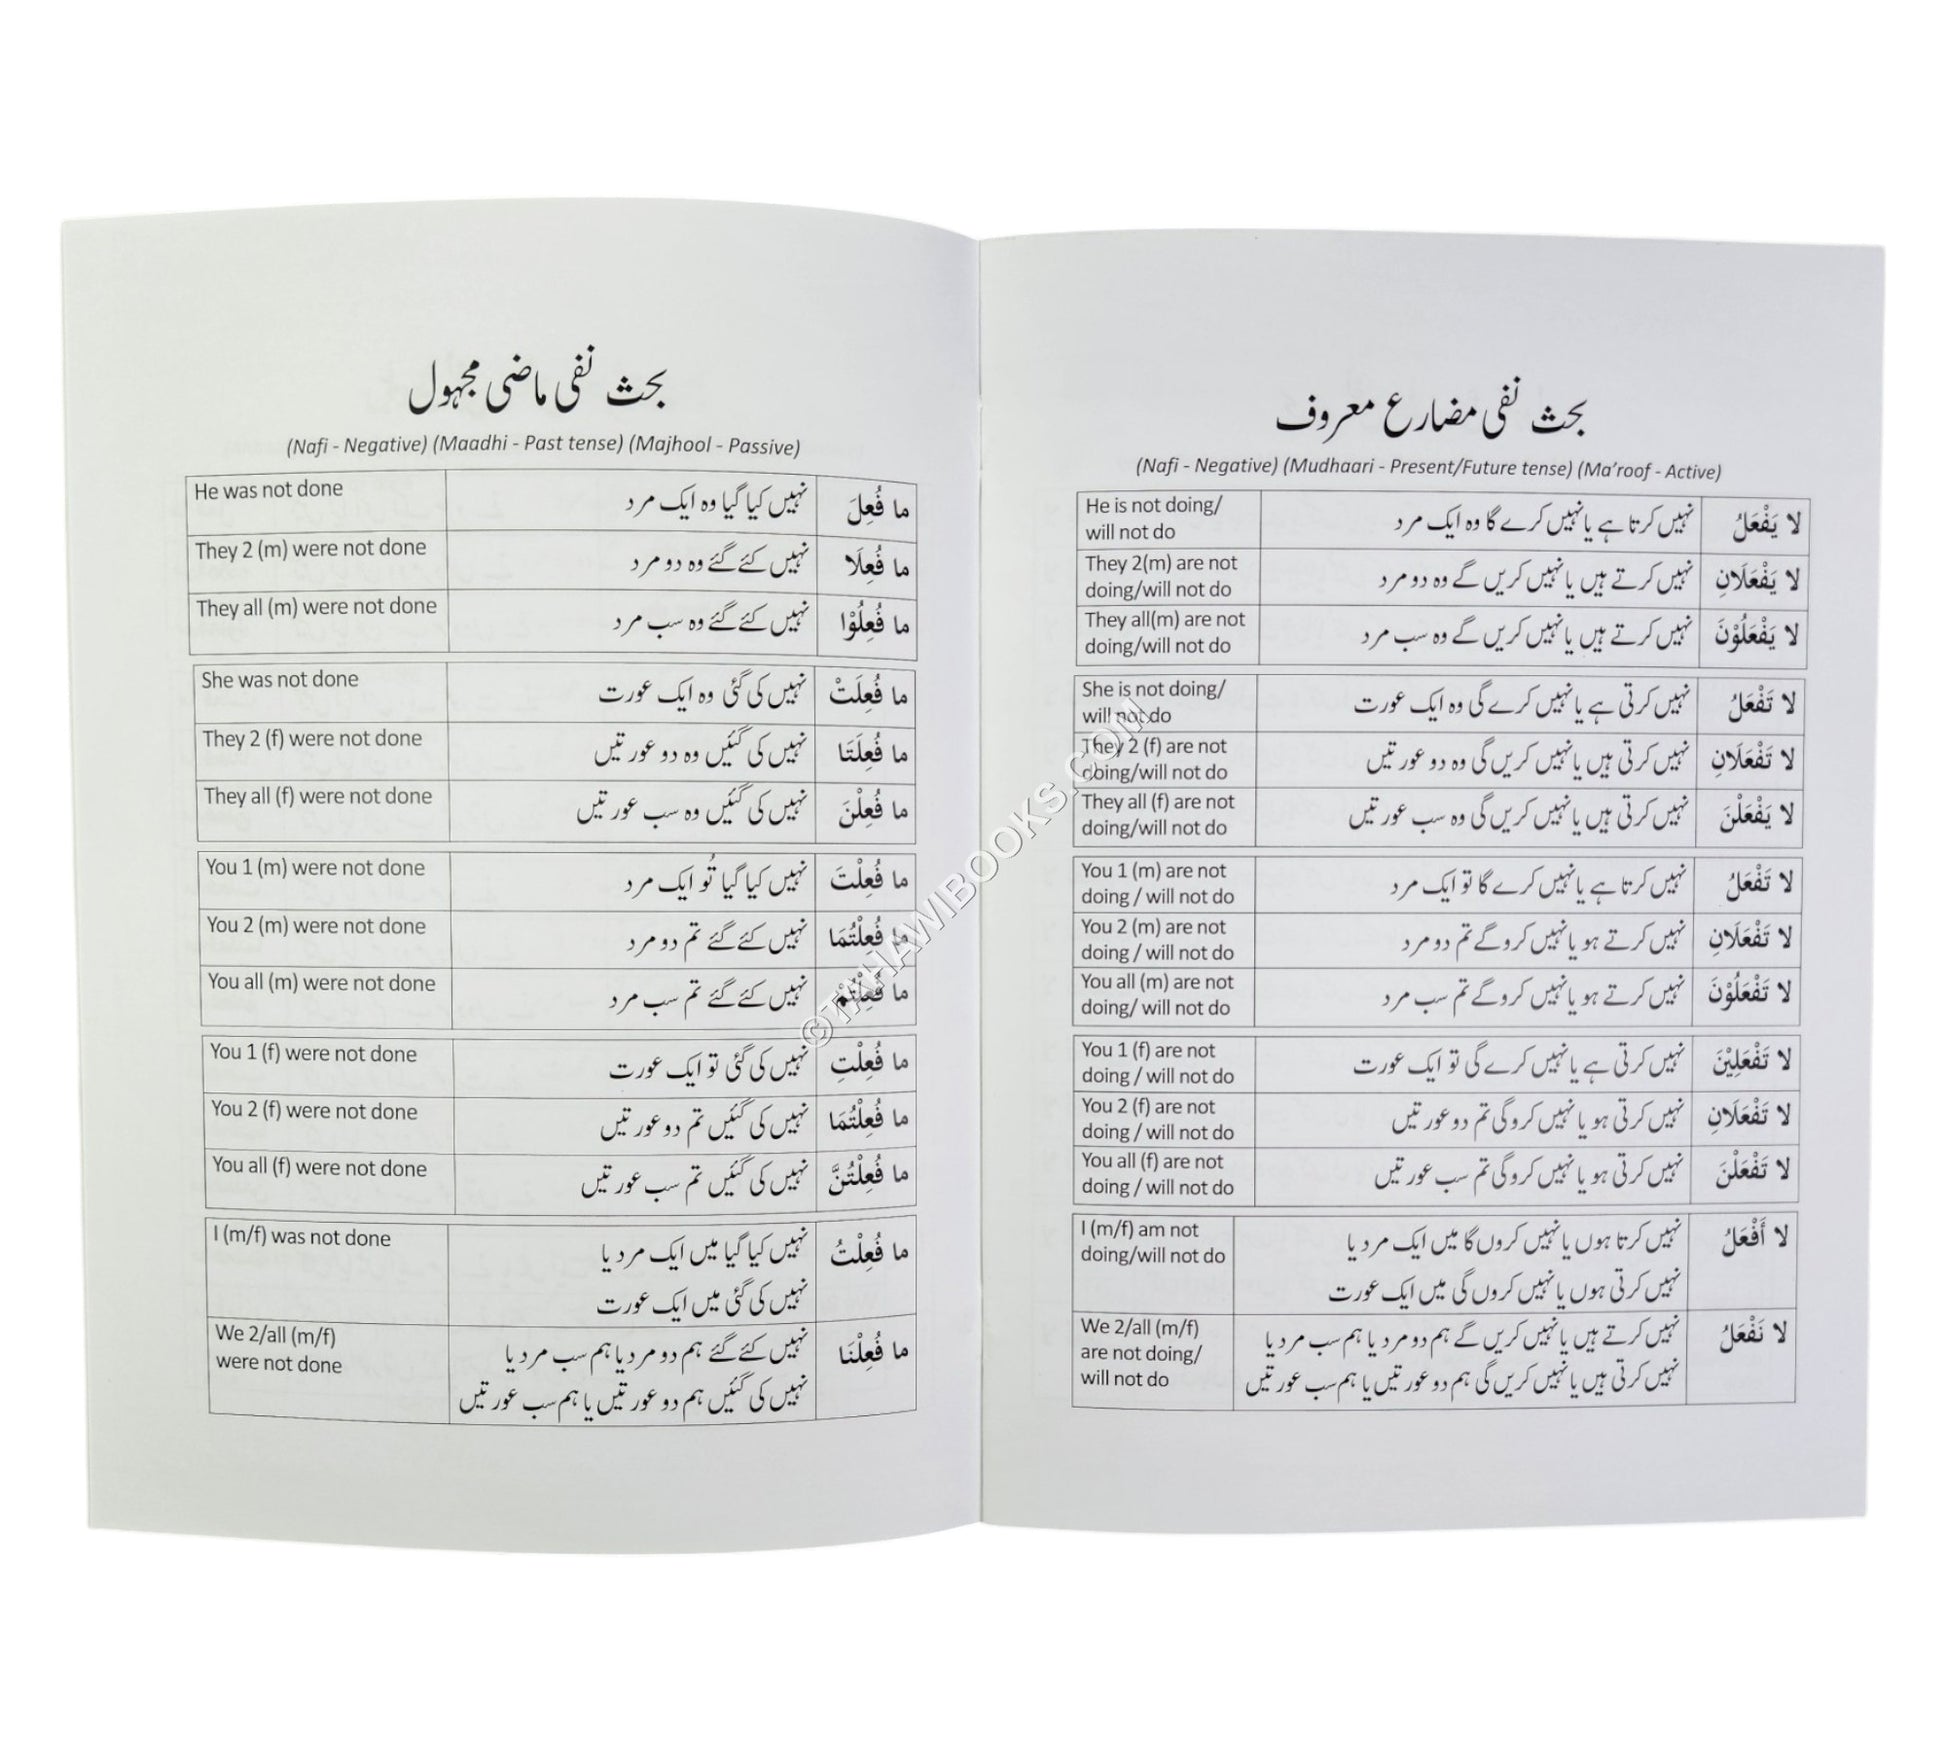 بحث نفی ماضی مجہول
(Nafi - Negative) (Maadhi - Past tense) (Majhool - Passive)
He was not done نہیں کیا گیا وہ ایک مرد ما فُعِلَ
They 2 (m) were not done نہیں کئے گئے وہ دو مرد ما فُعِلَا
They all (m) were not done نہیں کئے گئے وہ سب مرد ما فُعِلُوْا
She was not done نہیں کی گئی وہ ایک عورت ما فُعِلَتْ
They 2 (f) were not done نہیں کی گئیں وہ دو عورتیں ما فُعِلَتَا
They all (f) were not done نہیں کی گئیں وہ سب عورتیں ما فُعِلْنَ
You 1 (m) were not done نہیں کیا گیا تُو ایک مرد ما فُعِلْتَ
You 2 (m) were not done نہیں کئے گئے تم دو مرد ما فُعِلْتُمَا
You all (m) were not done نہیں کئے گئے تم سب مرد ما فُعِلْتُمْ
You 1 (f) were not done نہیں کی گئی تو ایک عورت ما فُعِلْتِ
You 2 (f) were not done نہیں کی گئیں تم دو عورتیں ما فُعِلْتُمَا
You all (f) were not done نہیں کی گئیں تم سب عورتیں ما فُعِلْتُنَّ
I (m/f) was not done نہیں کیا گیا میں ایک مرد یا ما فُعِلْتُ
نہیں کی گئی میں ایک عورت
We 2/all (m/f) نہیں کئے گئے ہم دو مرد یا ہم سب مرد یا ما فُعِلْنَا
were not done نہیں کی گئیں ہم دو عورتیں یا ہم سب عورتیں
بحث نفی مضارع معروف
(Nafi - Negative) (Mudhaari - Present/Future tense) (Ma'roof - Active)
He is not doing/ نہیں کرتا ہے یا نہیں کرے گا وہ ایک مرد لا يَفْعَلُ
will not do
They 2(m) are not نہیں کرتے ہیں یا نہیں کریں گے وہ دو مرد لا يَفْعَلَانِ
doing/will not do
They all(m) are not نہیں کرتے ہیں یا نہیں کریں گے وہ سب مرد لا يَفْعَلُوْنَ
doing/will not do
She is not doing/ نہیں کرتی ہے یا نہیں کرے گی وہ ایک عورت لا تَفْعَلُ
will not do
They 2 (f) are not نہیں کرتی ہیں یا نہیں کریں گی وہ دو عورتیں لا تَفْعَلَانِ
doing/will not do
They all (f) are not نہیں کرتی ہیں یا نہیں کریں گی وہ سب عورتیں لا يَفْعَلْنَ
doing/will not do
You 1 (m) are not نہیں کرتا ہے یا نہیں کرے گا تو ایک مرد لا تَفْعَلُ
doing / will not do
You 2 (m) are not نہیں کرتے ہو یا نہیں کروگے تم دو مرد لا تَفْعَلَانِ
doing / will not do
You all (m) are not نہیں کرتے ہو یا نہیں کروگے تم سب مرد لا تَفْعَلُوْنَ
doing/ will not do
You 1 (f) are not نہیں کرتی ہے یا نہیں کرے گی تو ایک عورت لا تَفْعَلِيْنَ
doing / will not do
You 2 (f) are not نہیں کرتی ہو یا نہیں کروگی تم دو عورتیں لا تَفْعَلَانِ
doing / will not do
You all (f) are not نہیں کرتی ہو یا نہیں کروگی تم سب عورتیں لا تَفْعَلْنَ
doing / will not do
I (m/f) am not نہیں کرتا ہوں یا نہیں کروں گا میں ایک مرد یا لا أَفْعَلُ
doing/will not do نہیں کرتی ہوں یا نہیں کروں گی میں ایک عورت
We 2/all (m/f) نہیں کرتے ہیں یا نہیں کریں گے ہم دو مرد یا ہم سب مرد یا لا نَفْعَلُ
are not doing/ نہیں کرتی ہیں یا نہیں کریں گی ہم دو عورتیں یا ہم سب عورتیں
will not do